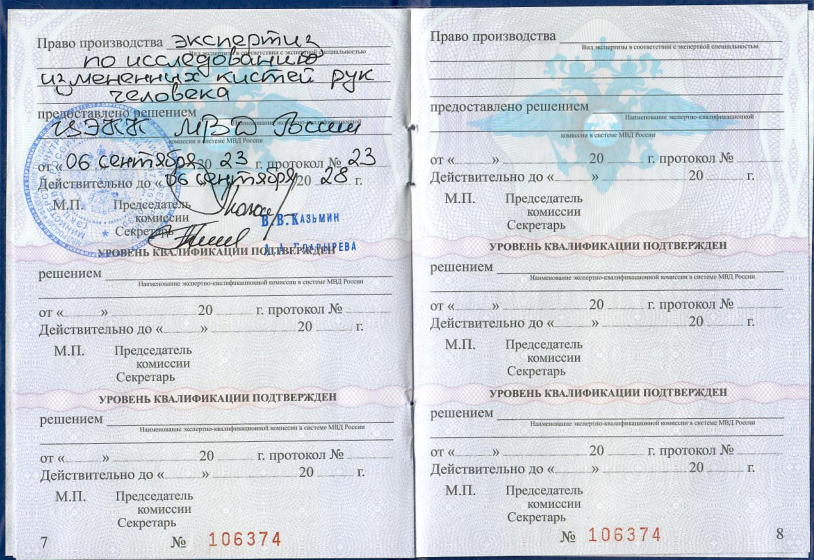 Право производства экспертиз
Вид экспертизы в соответствии с экспертной специальностью
по исследованию
измененных кистей рук
человека
предоставлено решением
ЦЭКК МВД России
комиссии в системе МВД России
от « 06 сентября 20 23 г. протокол № 23
Действительно до « 06 сентября 20 28 г.
М.П. Председатель
комиссии
В.В. КАЗЬМИН
Секретарь
УРОВЕНЬ КВАЛИФИКАЦИИ ПОДТВЕРЖДЕН
решением
Наименование экспертно-квалификационной комиссии в системе МВД России
от « » 20 г. протокол №
Действительно до « » 20 г.
М.П. Председатель
комиссии
Секретарь
УРОВЕНЬ КВАЛИФИКАЦИИ ПОДТВЕРЖДЕН
решением
Наименование экспертно-квалификационной комиссии в системе МВД России
от « » 20 г. протокол №
Действительно до « » 20 г.
М.П. Председатель
комиссии
Секретарь
7 № 106374
Право производства
Вид экспертизы в соответствии с экспертной специальностью
предоставлено решением
Наименование экспертно-квалификационной
комиссии в системе МВД России
от « » 20 г. протокол №
Действительно до « » 20 г.
М.П. Председатель
комиссии
Секретарь
УРОВЕНЬ КВАЛИФИКАЦИИ ПОДТВЕРЖДЕН
решением
Наименование экспертно-квалификационной комиссии в системе МВД России
от « » 20 г. протокол №
Действительно до « » 20 г.
М.П. Председатель
комиссии
Секретарь
УРОВЕНЬ КВАЛИФИКАЦИИ ПОДТВЕРЖДЕН
решением
Наименование экспертно-квалификационной комиссии в системе МВД России
от « » 20 г. протокол №
Действительно до « » 20 г.
М.П. Председатель
комиссии
Секретарь
№ 106374 8